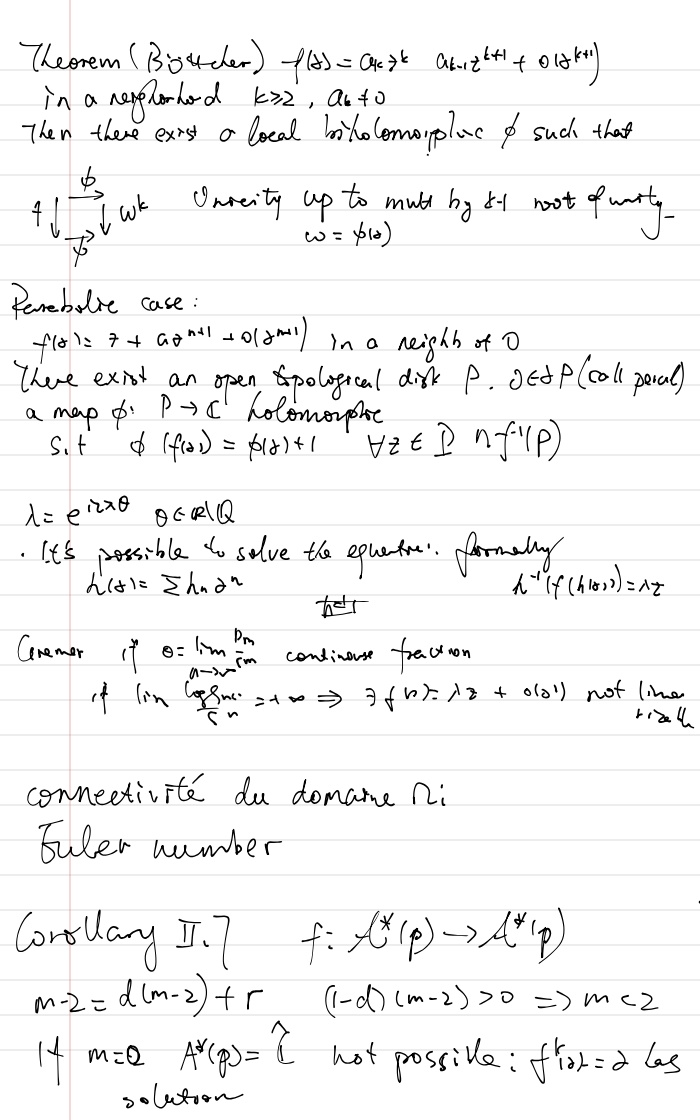 Theorem (Böttcher) f(z) = a_k z^k a_{k-1} z^{k+1} + o(z^{k+1})
in a neighborhod k≥2, a_k ≠ 0
Then there exist a local biholomorphic ϕ such that
ϕ
f ↓ ↓ w^k Unicity up to mult by k-1 root of unity
ϕ w = ϕ(z)
Parabolic case :
f(z) = z + a z^{n+1} + o(z^{n+1}) in a neighb of 0
There exist an open topological disk P. 0 ∈ ∂P (call petal)
a map ϕ: P → ℂ holomorphic
s.t ϕ(f(z)) = ϕ(z)+1 ∀z ∈ P ∩ f^{-1}(P)
λ = e^{i2πθ} θ ∈ ℝ\ℚ
. It's possible to solve the equation: formally
h(z) = Σ h_n z^n h^{-1}(f(h(z))) = λz
Cremer if θ = lim_{n→∞} continous fraction
if lim = +∞ ⇒ ∃ f(z) = λz + o(z) not linea
rizable
connectivité du domaine Ω_i
Euler number
Corollary II.7 f: A*(p) → A*(p)
m-2 = d(m-2) + r (1-d)(m-2) > 0 ⇒ m < 2
If m=0 A*(p) = Ĉ not possible : f^k(z) = z has
solution